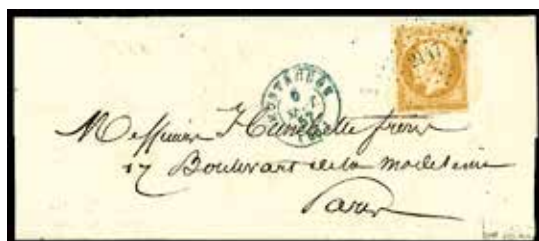 2147
6
Messieurs Hunebelle frères
17 Boulevart de la madeleine
Paris